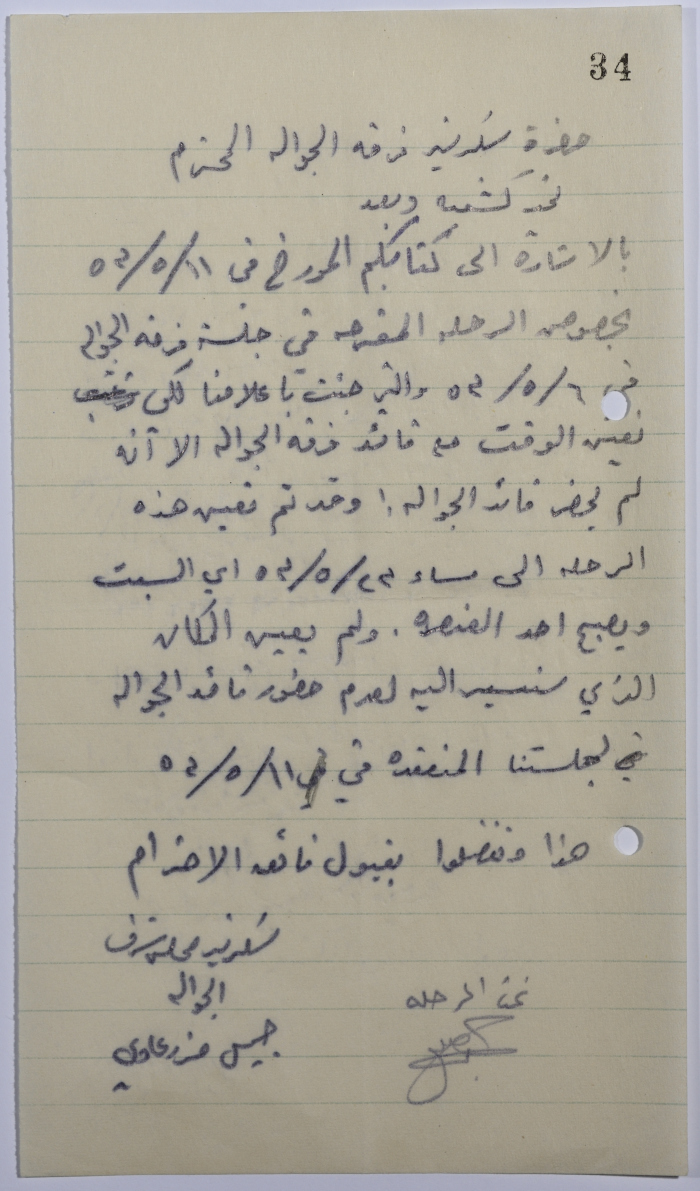 34
حضرة سكرتير فرقه الجواله المحترم
تحيه كشفيه وبعد
بالاشارة الى كتابكم المورخ في ٥٣/٥/١١
بخصوص الرحله المقترحه في جلسة فرقه الجواله
في ٥٣/٥/٦ والتي جئت باعلامنا لكي
نعين الوقت مع قائد فرقه الجواله الا أنه
لم يحضر قائد الجواله ! وقد تم تعيين هذه
الرحله الى مساء ٥٣/٥/٢٣ اي السبت
ويصبح احد العنصره . ولم يعين المكان
الذي سنسير اليه لعدم حضور قائد الجواله
في جلستنا المنعقده في ٥٣/٥/١١
هذا وتفضلوا بقبول فائق الاحترام
سكرتير
الجواله
تمت الرحله